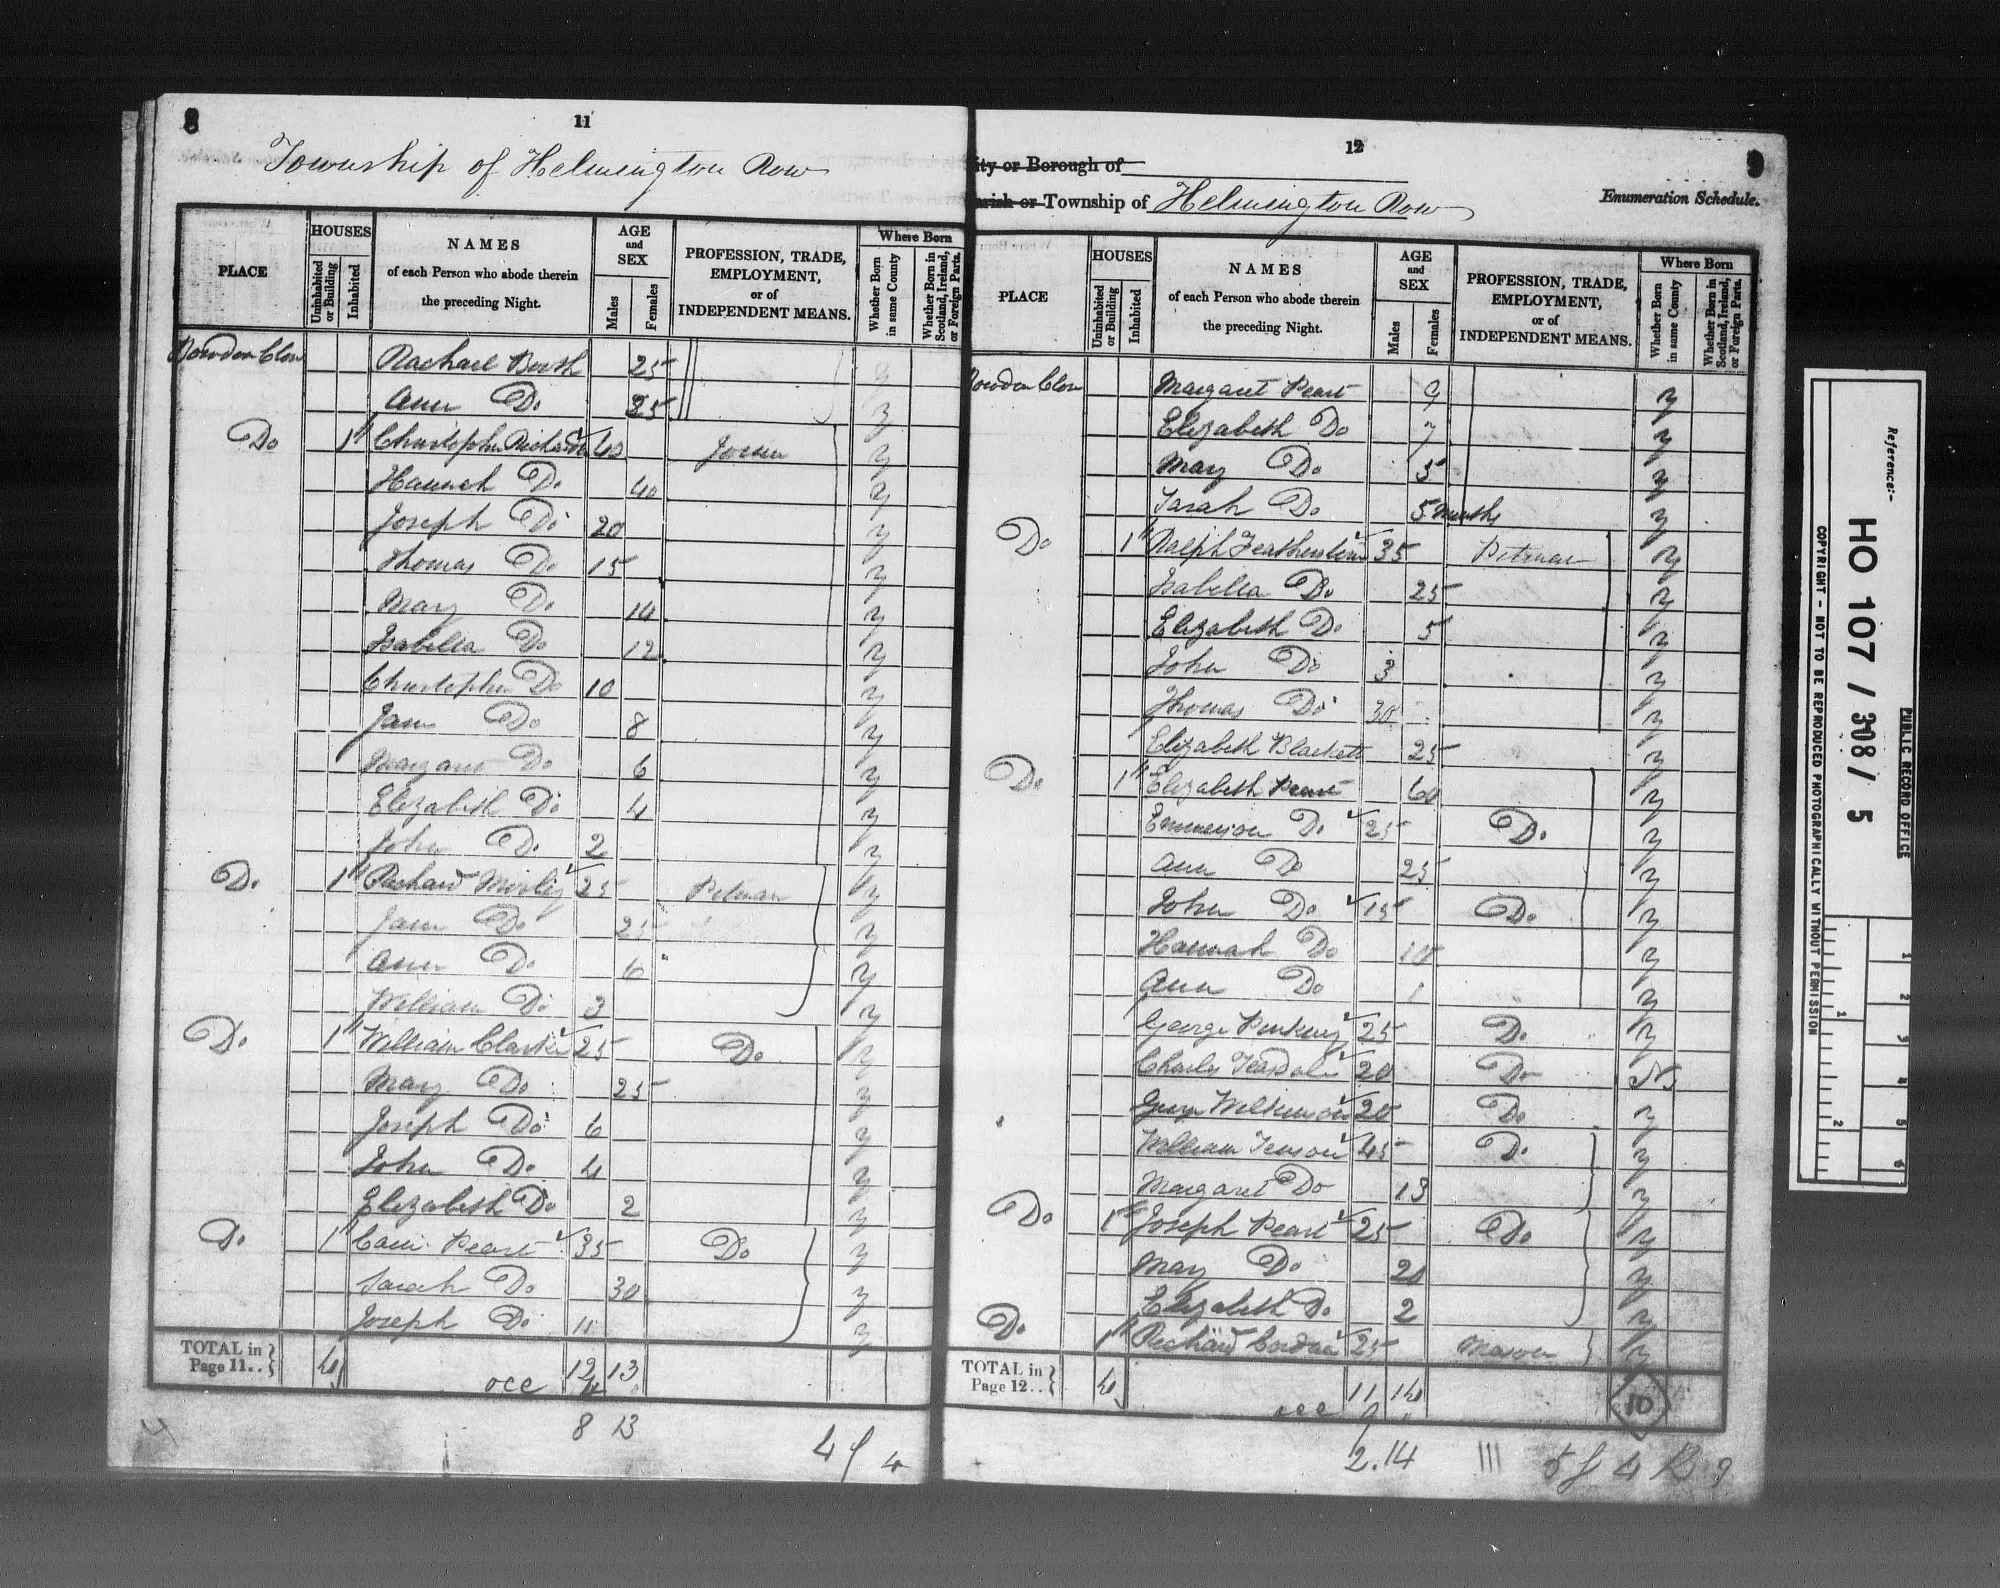 8
11
Township of Helmington Row
PLACE
HOUSES
Uninhabited or Building
Inhabited
NAMES
of each Person who abode therein
the preceding Night.
AGE
and
SEX
Males
Females
PROFESSION, TRADE,
EMPLOYMENT,
or of
INDEPENDENT MEANS.
Where Born
Whether Born in same County
Whether Born in Scotland, Ireland, or Foreign Parts.
Bowden Close Rachael 25 y
Ann Do 25 y
Do 1 Christopher 40 Joiner y
Hannah Do 40 y
Joseph Do 20 y
Thomas Do 15 y
Mary Do 14 y
Isabella Do 12 y
Christopher Do 10 y
Jane Do 8 y
Margaret Do 6 y
Elizabeth Do 4 y
John Do 2 y
Do 1 Richard 25 Pitman y
Jane Do 25 y
Ann Do 6 y
William Do 3 y
Do 1 William Clarke 25 Do y
Mary Do 25 y
Joseph Do 6 y
John Do 4 y
Elizabeth Do 2 y
Do 1 Peart 35 Do y
Sarah Do 30 y
Joseph Do 11 y
TOTAL in
Page 11..
4 12 13
occ 4
8 13
4 f 4
12
9
City or Borough of
Parish or Township of Helmington Row
Enumeration Schedule.
PLACE
HOUSES
Uninhabited or Building
Inhabited
NAMES
of each Person who abode therein
the preceding Night.
AGE
and
SEX
Males
Females
PROFESSION, TRADE,
EMPLOYMENT,
or of
INDEPENDENT MEANS.
Where Born
Whether Born in same County
Whether Born in Scotland, Ireland, or Foreign Parts.
Bowden Close Margaret Peart 9 y
Elizabeth Do 7 y
Mary Do 5 y
Sarah Do 5 Months y
Do 1 Ralph Featherstone 35 Pitman y
Isabella Do 25 y
Elizabeth Do 5 y
John Do 3 y
Thomas Do 30 y
Elizabeth Blackett 25 y
Do 1 Elizabeth Peart 60 y
Emmerson Do 25 Do y
Ann Do 25 y
John Do 15 Do y
Hannah Do 10 y
Ann Do 1 y
George 25 Do y
Charles Teasdale 20 Do N
George Wilkinson 20 Do y
William 45 Do y
Margaret Do 13 y
Do 1 Joseph Peart 25 Do y
Mary Do 20 y
Elizabeth Do 2 y
Do 1 Richard 25 Mason y
TOTAL in
Page 12..
4 11 14
occ 9
10
2.14
Reference:-
HO 107 / 308 / 5
PUBLIC RECORD OFFICE
COPYRIGHT - NOT TO BE REPRODUCED PHOTOGRAPHICALLY WITHOUT PERMISSION
1 2 3 4 5 6
1 2